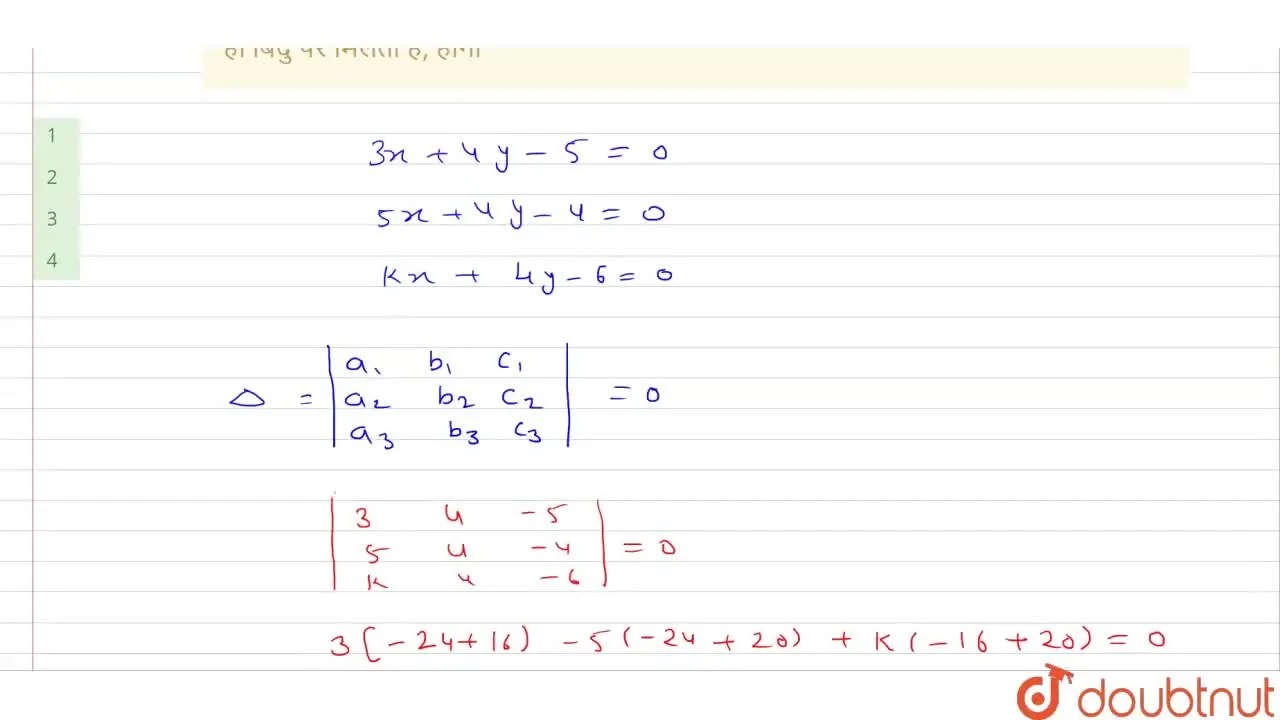 ही बिंदु पर मिलती है, होगा
1
2
3
4
3x + 4y - 5 = 0
5x + 4y - 4 = 0
kx + 4y - 6 = 0
a1 b1 c1
Δ = a2 b2 c2 = 0
a3 b3 c3
3 4 -5
5 4 -4 = 0
k 4 -6
3[-24+16) -5(-24+20) + k(-16+20) = 0
doubtnut